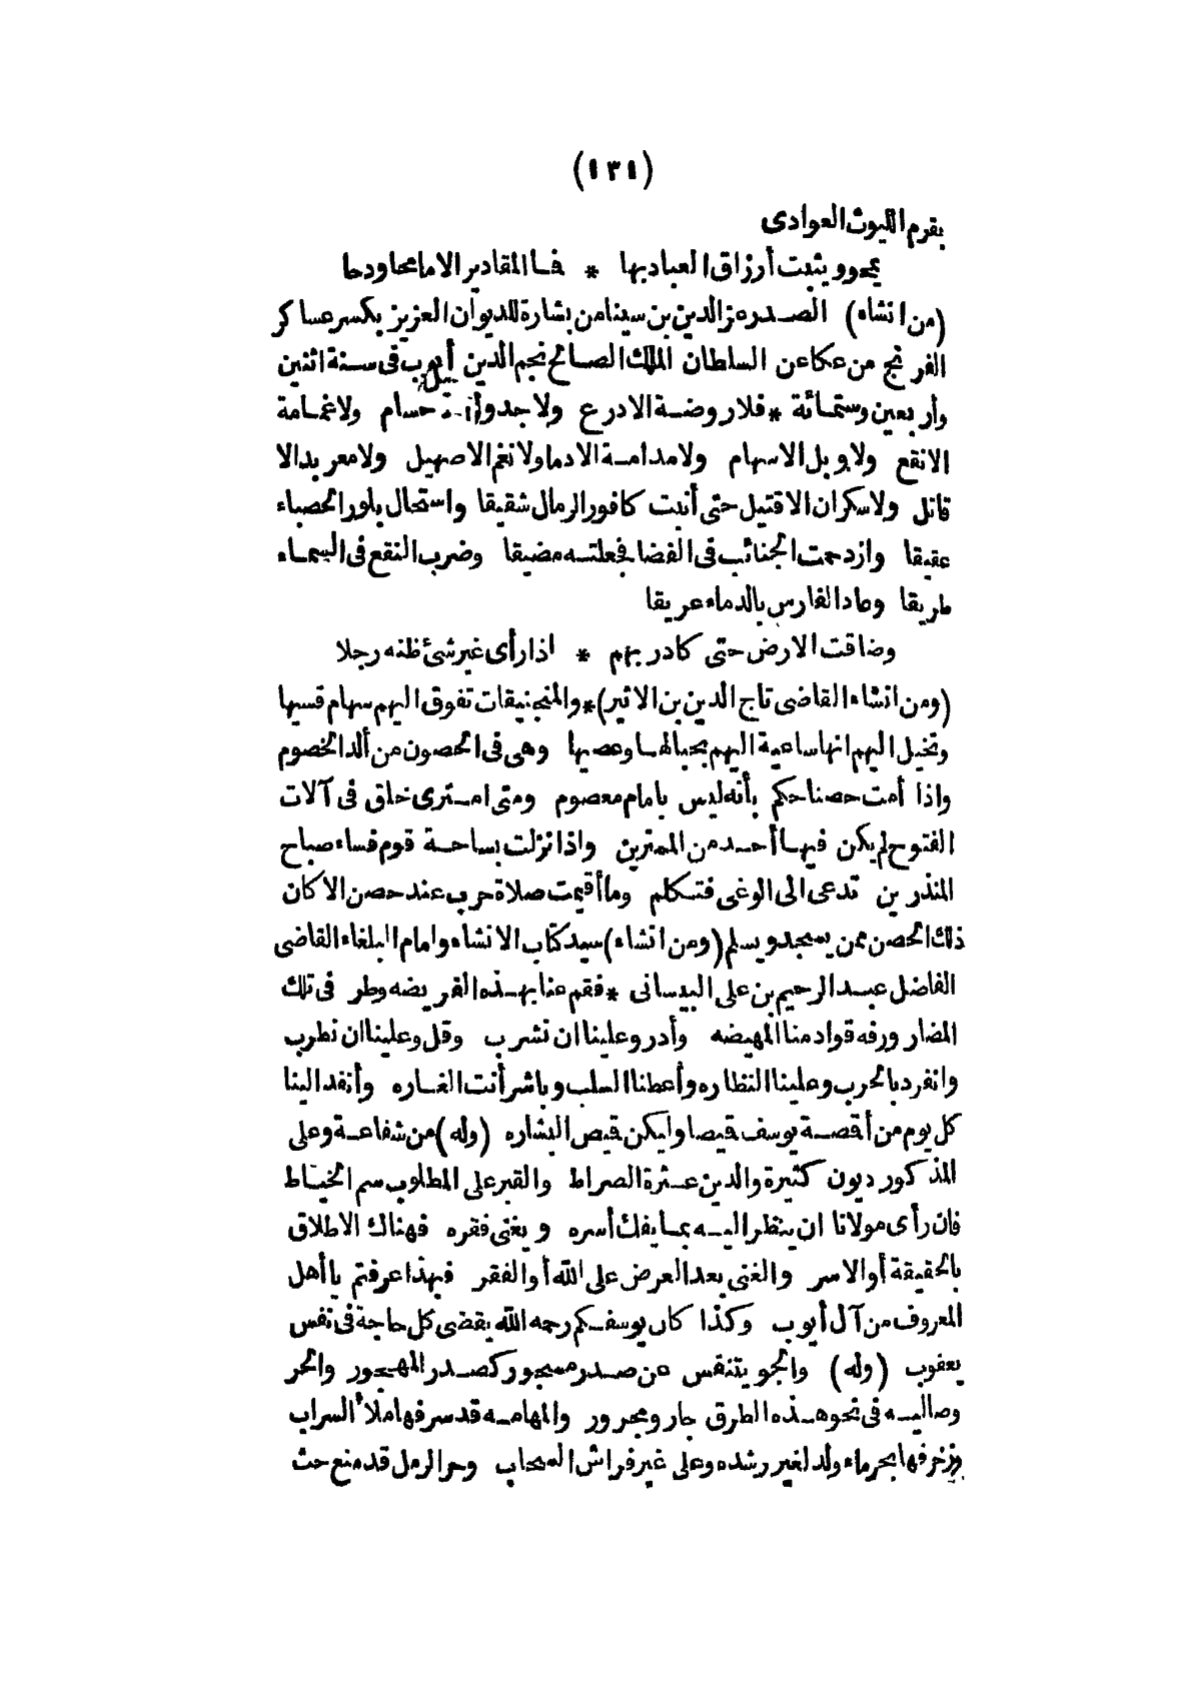 (١٣١)
بقرم الليوث العوادى
يمحو ويثبت أرزاق العباد بها * فما المقادير الا ما محا ودحا
(من انشاء) الصدر عز الدين بن سينا من بشارة للديوان العزيز بكسر عساكر
الفرنج من عكا عن السلطان الملك الصالح نجم الدين أيوب فى سنة اثنين
وأربعين وستمائة * فلا روضة الا درع ولا جدول حسام ولا غمامة
الا نقع ولا وبل الا سهام ولا مدامة الا دما ولا نغم الا صهيل ولا معربد الا
قاتل ولا سكران الا قتيل حتى أنبت كافور الرمال شقيقا واستحال بلور الحصباء
عقيقا وازدحمت الجنائب فى الفضا فجعلته مضيقا وضرب النقع فى السماء
طريقا وعاد الفارس بالدماء غريقا
وضاقت الارض حتى كاد ربهم * اذا رأى غير شئ ظنه رجلا
(ومن انشاء القاضى تاج الدين بن الاثير)* والمنجنيقات تفوق اليهم سهام قسيها
وتخيل اليهم انها ساعية اليهم بحبالها وعصيها وهى فى الحصون من ألد الخصوم
واذا أمت حصنا حكم بأنه ليس بامام معصوم ومتى امترى خلق فى آلات
الفتوح لم يكن فيها أحد من الممترين واذا نزلت بساحة قوم فساء صباح
المنذرين تدعى الى الوغى فتكلم وما أقيمت صلاة حرب عند حصن الا كان
ذلك الحصن ممن يسجد ويسلم (ومن انشاء) سيد كتاب الانشاء وامام البلغاء القاضى
الفاضل عبد الرحيم بن على البيسانى * فقم عنا بهذه الفريضه وطر فى تلك
المضار ورفه قوادمنا المهيضه وأدر وعلينا ان نشرب وقل وعلينا ان نطرب
وانفرد بالحرب وعلينا النظاره وأعطنا السلب وباشر أنت الغاره وأنفد الينا
كل يوم من أقصة يوسف قيصا وليكن قيص البشاره (وله) من شفاعة وعلى
المذكور ديون كثيرة والدين عثرة الصراط والقبر على المطلوب سم الخياط
فان رأى مولانا ان ينظر اليه بما يفك أسره ويغنى فقره فهناك الاطلاق
بالحقيقة أو الاسر والغنى بعد العرض على الله أو الفقر فبهذا عرفتم يا أهل
المعروف من آل أيوب وكذا كان يوسفكم رحمه الله يقضى كل حاجة فى نفس
يعقوب (وله) والجو يتنفس عن صدر مسجور كصدر المهجور والحر
وصاليه فى نحو هذه الطرق جار ومجرور والمهامه قد سر فها ملأ السراب
وزخر فها بحر ماء ولد لغير رشده وعلى غير فراش السحاب وحر الرمل قد منع حث